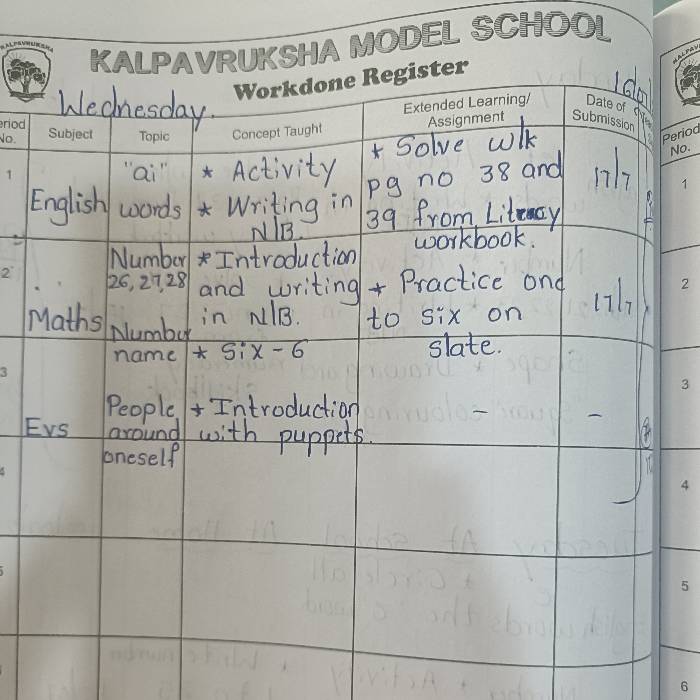 KALPAVRUKSHA
KALPAVRUKSHA MODEL SCHOOL
Workdone Register
Wednesday.
Period No.
Subject
Topic
Concept Taught
Extended Learning/
Assignment
Date of
Submission
1
English
"ai"
words
* Activity
* Writing in
N/B.
* Solve w/k
pg no 38 and
39 from Literacy
workbook.
17/7
2
Maths
Number
26, 27, 28
Number
name
* Introduction
and writing
in N/B.
* Six - 6
* Practice one
to six on
slate.
17/7
3
Evs
People
around
oneself
* Introduction
with puppets.
-
-
4
5
Period
No.
1
2
3
4
5
6